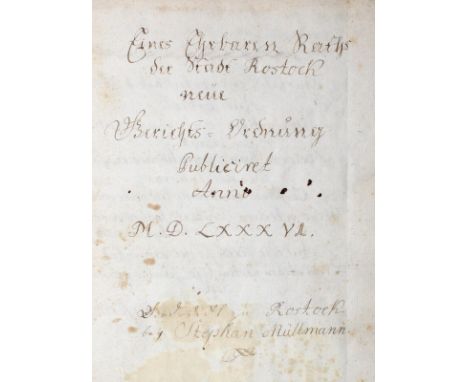 Eines Ehrbaren Raths
der Stadt Rostock
neüe
Gerichts = Ordnŭng
Publiciret
Anno
M. D. LXXXVI.
Rostock
bey Stephan Müllmann